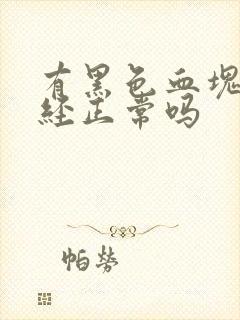 有黑色血块月
经正常吗
帕劳